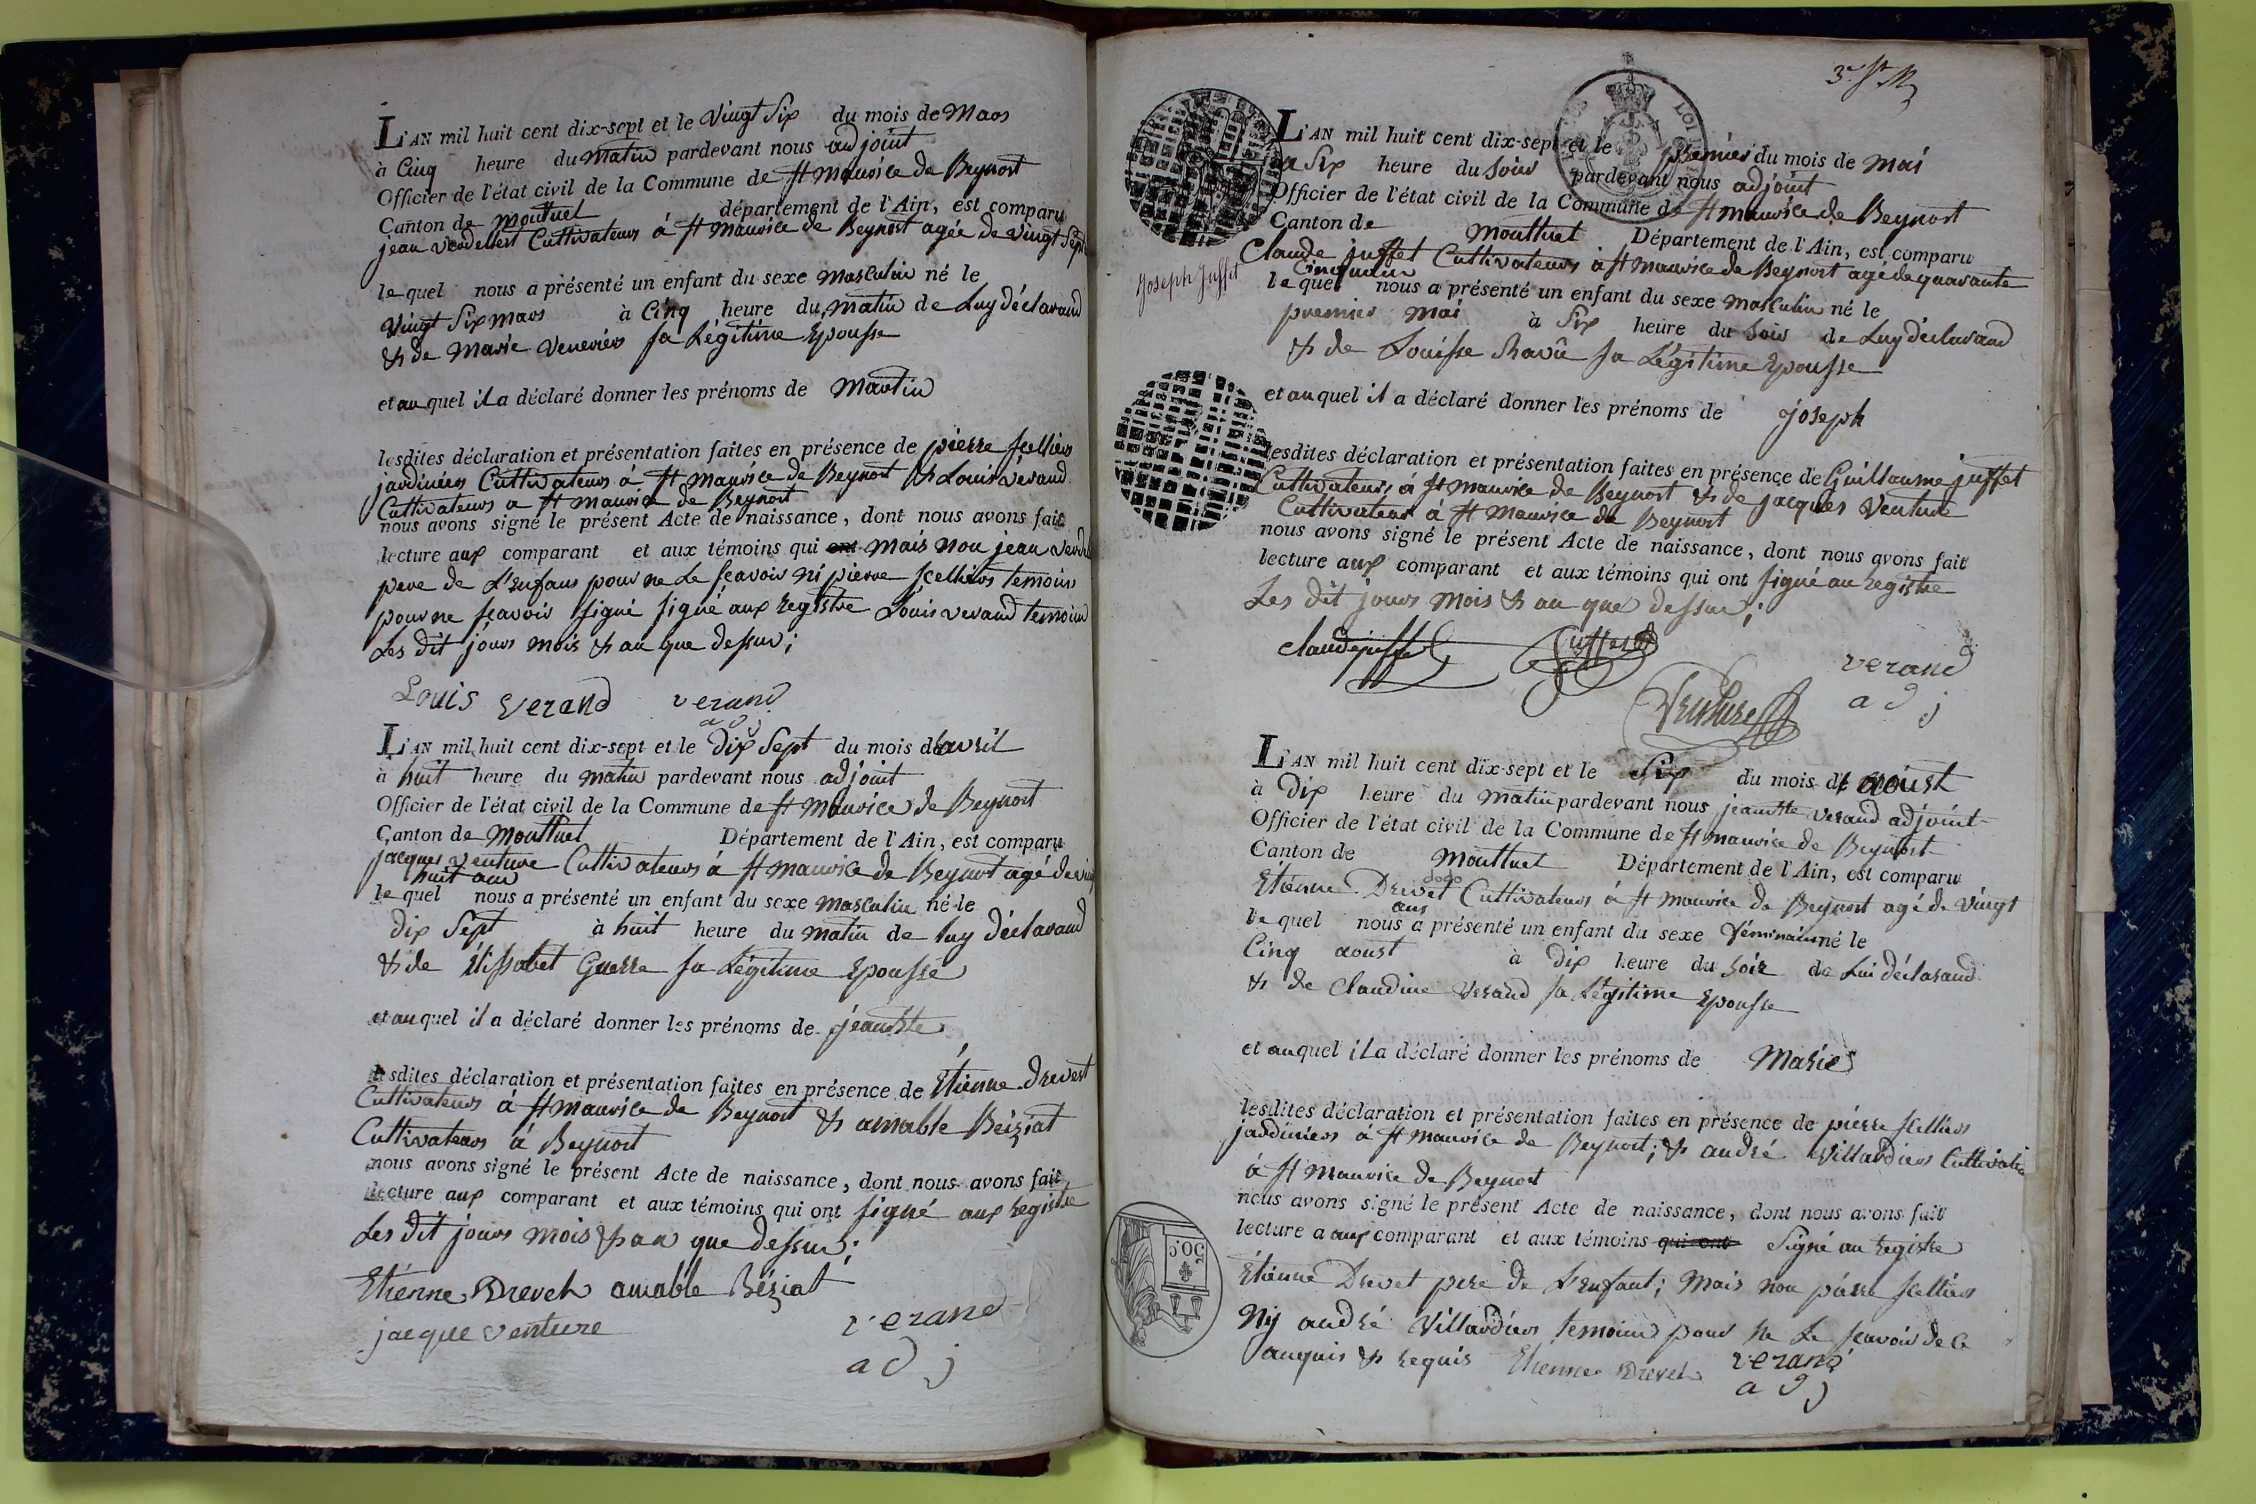 L'AN mil huit cent dix-sept et le Vingt Six du mois de Mars
à Cinq heure du matin pardevant nous adjoint
Officier de l'état civil de la Commune de St mauvice de Beynost
Canton de Montluel département de l'Ain, est comparu
jean Cultivateurs á St mauvice de Beynost agée de vingt Sept
le quel nous a présenté un enfant du sexe masculin né le
Vingt Six mars à Cinq heure du matin de Luy déclarand
& de Marie sa Légitime Epousse
et au quel il a déclaré donner les prénoms de Martin
lesdites déclaration et présentation faites en présence de pierre scelliers
jardiniers Cultivateurs á St mauvice de Beynost & Louis vérand
Cultivateurs a St mauvice de Beynost
nous avons signé le présent Acte de naissance, dont nous avons fait
lecture aux comparant et aux témoins qui ont mais non jean
pere de L'enfans pour ne Le scavoir ni pierre scelliers temoins
pour ne scavoir signé signé aux registre Louis verand temoins
Les dit jours mois & an que dessus;
Louis verand verand
adj
L'AN mil huit cent dix-sept et le dix Sept du mois d'avril
à huit heure du matin pardevant nous adjoint
Officier de l'état civil de la Commune de St Mauvice de Beynost
Canton de Montluel Département de l'Ain, est comparu
jacques venture Cultivateurs á St mauvice de Beynost agé de
huit ans
le quel nous a présenté un enfant du sexe masculin né le
dix Sept à huit heure du matin de luy déclarand
& de Elissabet Guerre sa Légitime Epousse
et au quel il a déclaré donner les prénoms de jeanbte
lesdites déclaration et présentation faites en présence de Étienne Drevest
Cultivateurs á St mauvice de Beynost & amable Béziat
Cultivateurs á Beynost
nous avons signé le présent Acte de naissance, dont nous avons fait
lecture aux comparant et aux témoins qui ont signé aux registre
Les dit jours mois & an que dessus;
Etienne Drevet amable Béziat
jacque venture verand
adj
L'AN mil huit cent dix-sept et le premier du mois de mai
a Six heure du soir pardevant nous adjoint
Officier de l'état civil de la Commune de St mauvice de Beynost
Canton de Montluel Département de l'Ain, est comparu
Claude juffet Cultivateurs á St mauvice de Beynost agé de quarante
Joseph Juffet
le quel nous a présenté un enfant du sexe masculin né le
premier mai à Six heure du soir de Luy déclarand
& de Louisse Ravû sa Légitime Epousse
et au quel il a déclaré donner les prénoms de joseph
lesdites déclaration et présentation faites en présence de Guillaume juffet
Cultivateurs a St mauvice de Beynost & de jacques Venture
Cultivateur a St Mauvice de Beynost
nous avons signé le présent Acte de naissance, dont nous avons fait
lecture aux comparant et aux témoins qui ont signé au registre
Les dit jours mois & an que dessus;
claude juffet juffet verand
venture adj
L'AN mil huit cent dix-sept et le Six du mois d'aoust
à dix heure du matin pardevant nous jeanbte verand adjoint
Officier de l'état civil de la Commune de St mauvice de Beynost
Canton de Montluel Département de l'Ain, est comparu
Etienne Drevet Cultivateurs á St mauvice de Beynost agé de vingt
ans
le quel nous a présenté un enfant du sexe féminain né le
Cinq aoust à dix heure du soir de Lui déclarand
& de Claudine Verand sa Légitime Epousse
et au quel il a déclaré donner les prénoms de Marie
lesdites déclaration et présentation faites en présence de pierre scelliers
jardiniers á St mauvice de Beynost; & andré Villardiers Cultivateur
á St mauvice de Beynost
nous avons signé le présent Acte de naissance, dont nous avons fait
lecture a aux comparant et aux témoins qui ont Signé au registre
Etienne Drevet pere de L'enfant; mais non pierre scelliers
Ny andré Villardiers temoins pour ne Le scavoir de ce
anquis & requis Etienne Drevet verand
adj
50.C